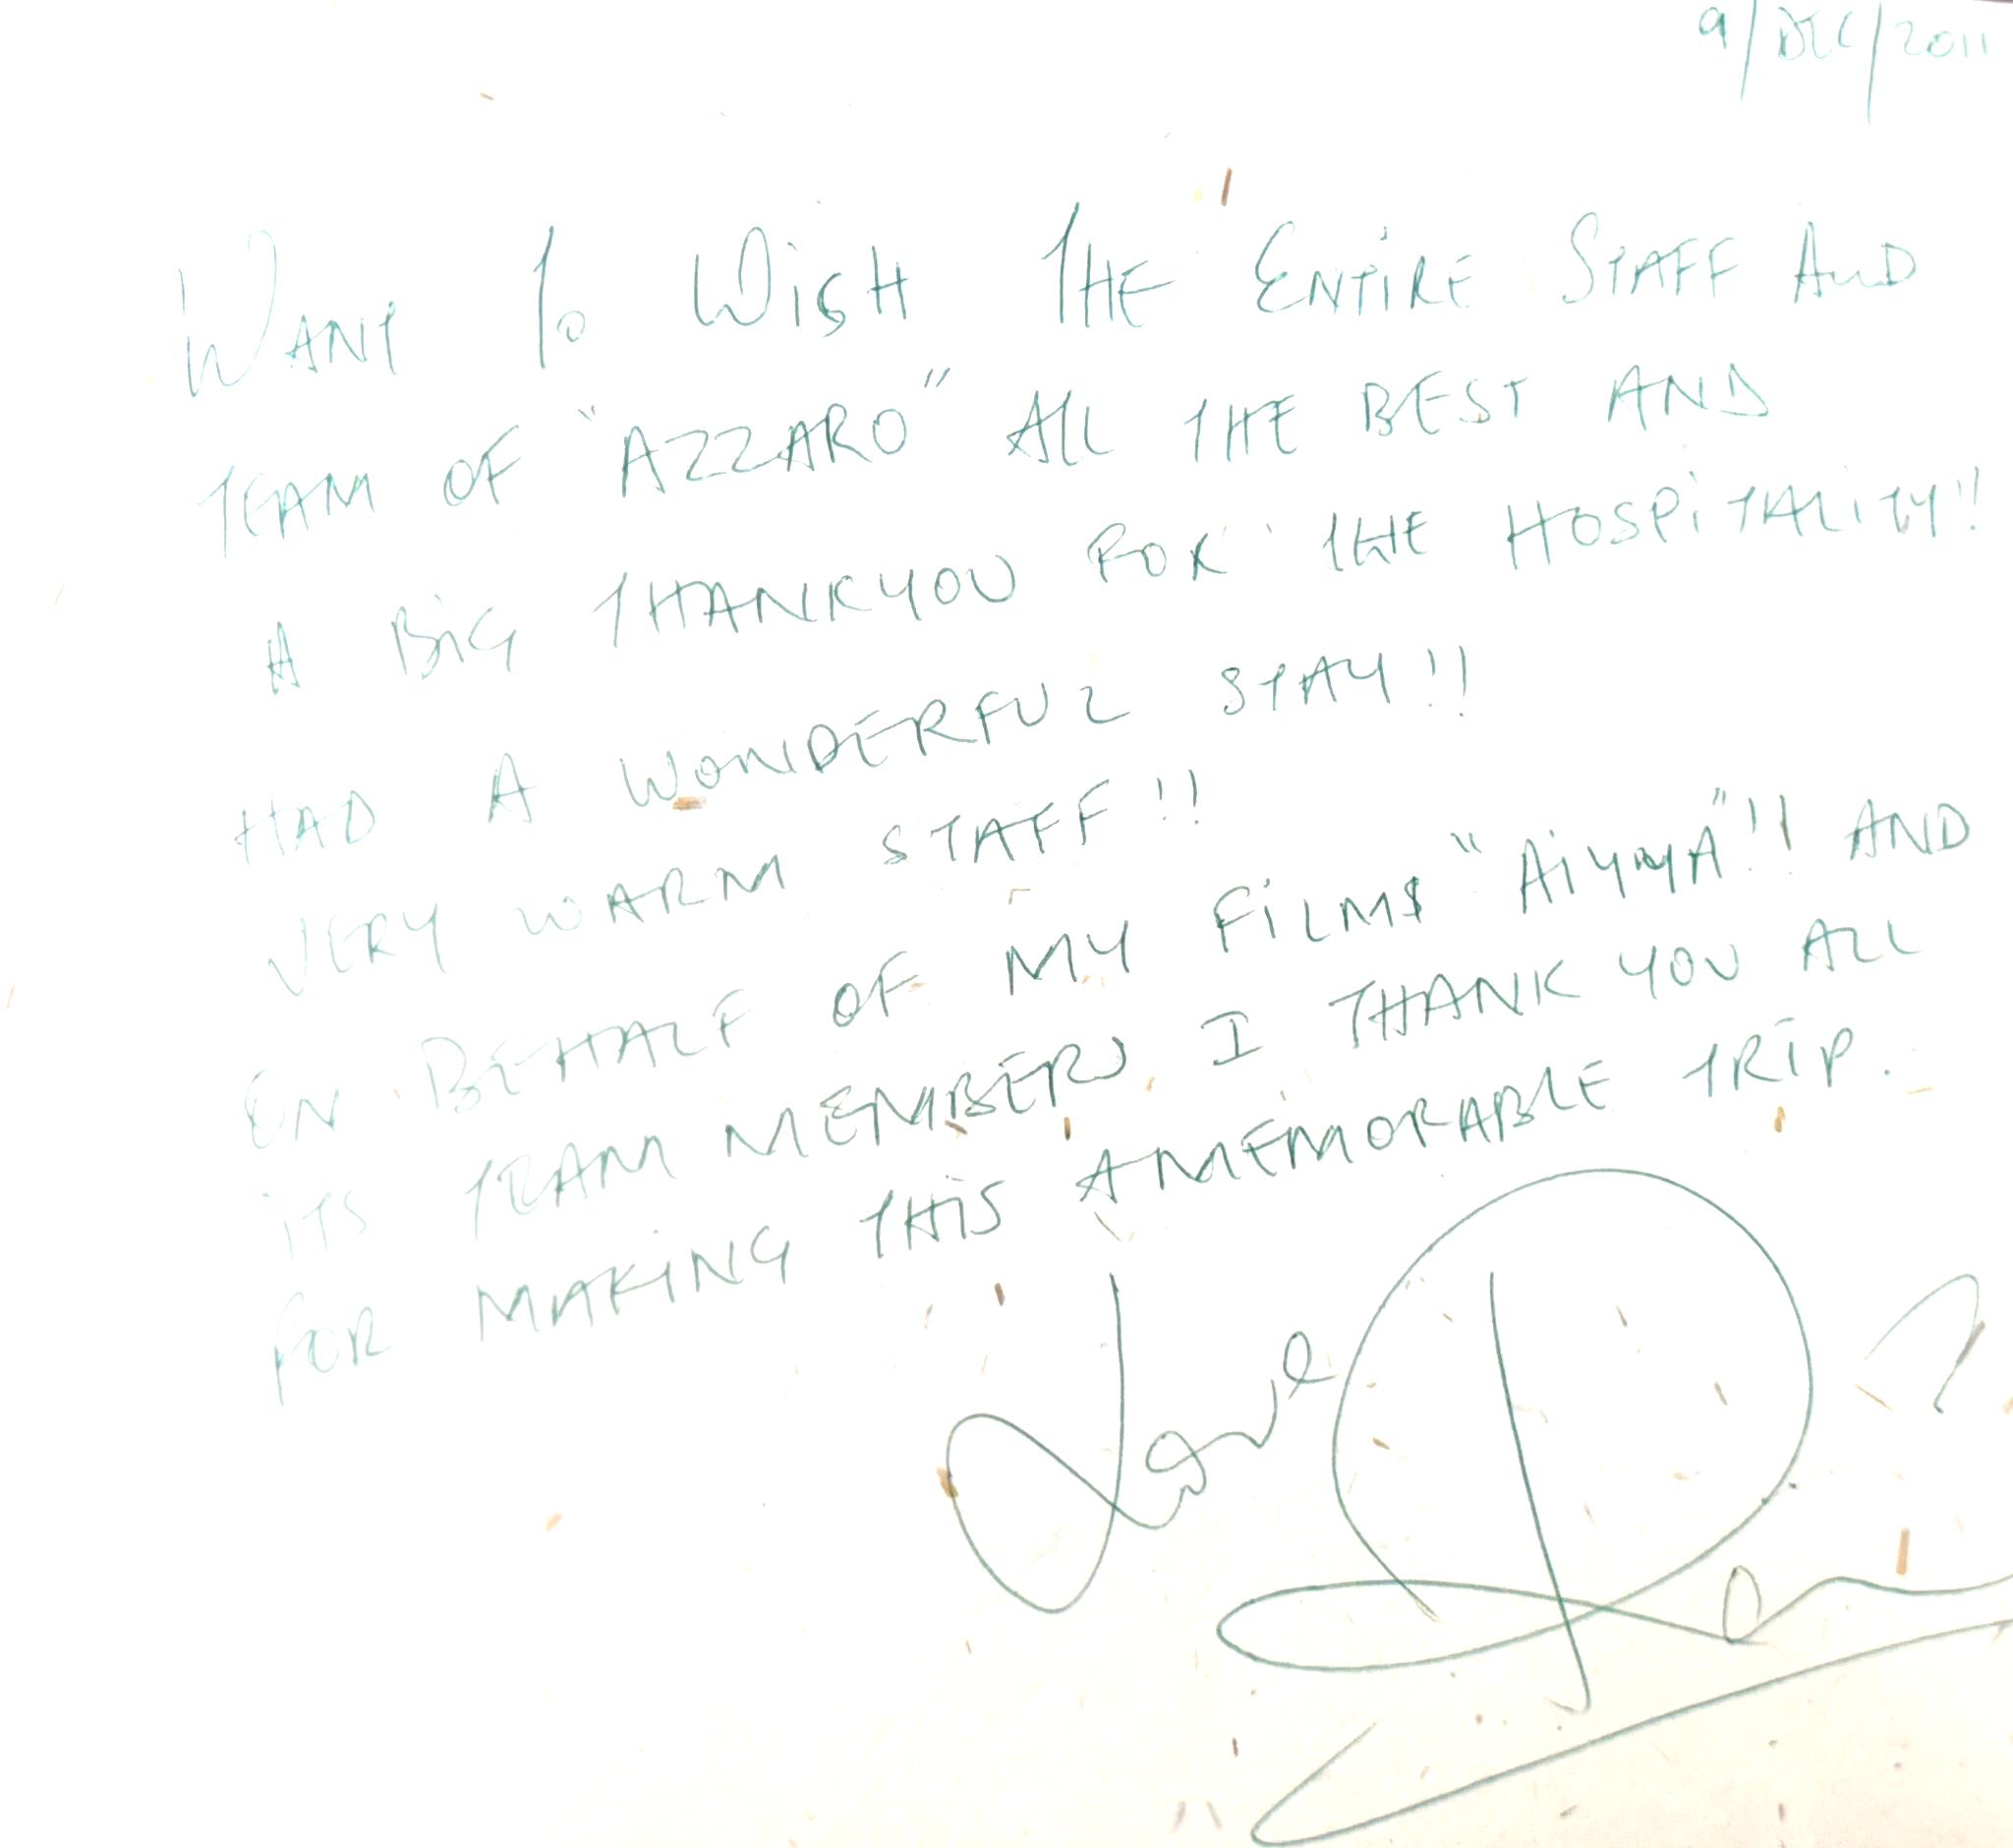 9/DEC/2011
WANT To WiSH THE ENTiRE STAFF AND
TEAM OF "AZZARO" All THE BEST AND
A BiG THANKYOU FOR THE HOSPiTALiTY!!
HAD A WONDERFUL STAY!!
VERY WARM STAFF!!
ON BEHALF OF MY FiLMS "AiYYA"!! AND
iTS TEAM MEMBERS I THANK YOU ALL
FOR MAKiNG THiS A MEMORABLE TRiP.
Love